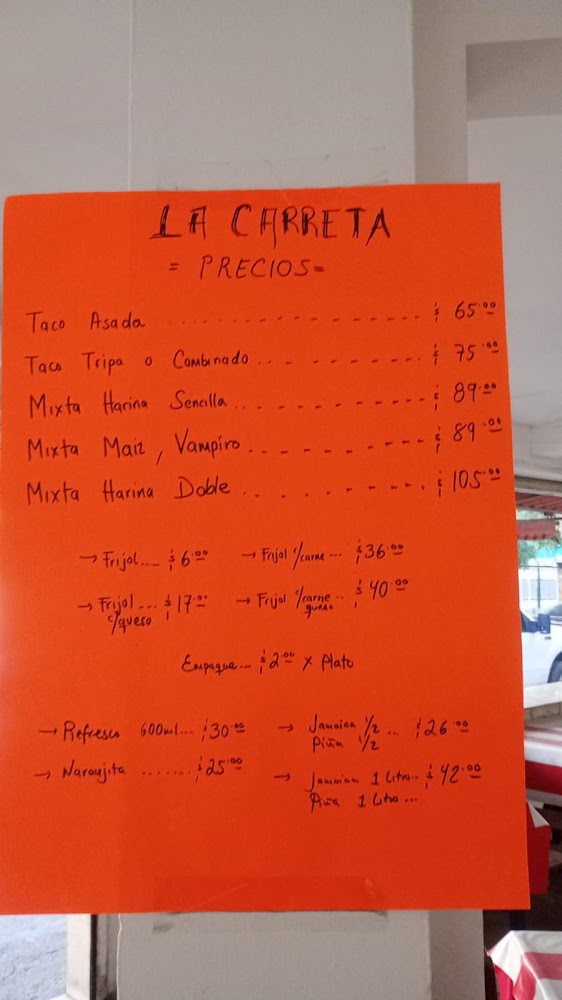 LA CARRETA
= PRECIOS =
Taco Asada .................. $ 65.00
Taco Tripa o Combinado ............ $ 75.00
Mixta Harina Sencilla .............. $ 89.00
Mixta Maiz, Vampiro ............ $ 89.00
Mixta Harina Doble ............. $ 105.00
→ Frijol .... $ 6.00 → Frijol c/carne ... $ 36.00
→ Frijol ... $ 17.00 → Frijol c/carne .. $ 40.00
c/queso queso
Empaque ... $ 2.00 x Plato
→ Refresco 600ml ... $ 30.00 → Jamaica 1/2 ... $ 26.00
Piña 1/2
→ Naranjita ....... $ 25.00 → Jamaica 1 Litro .. $ 42.00
Piña 1 Litro ...